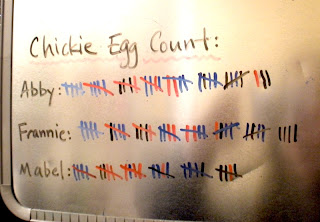 Chickie Egg Count:
Abby:
Frannie:
Mabel: